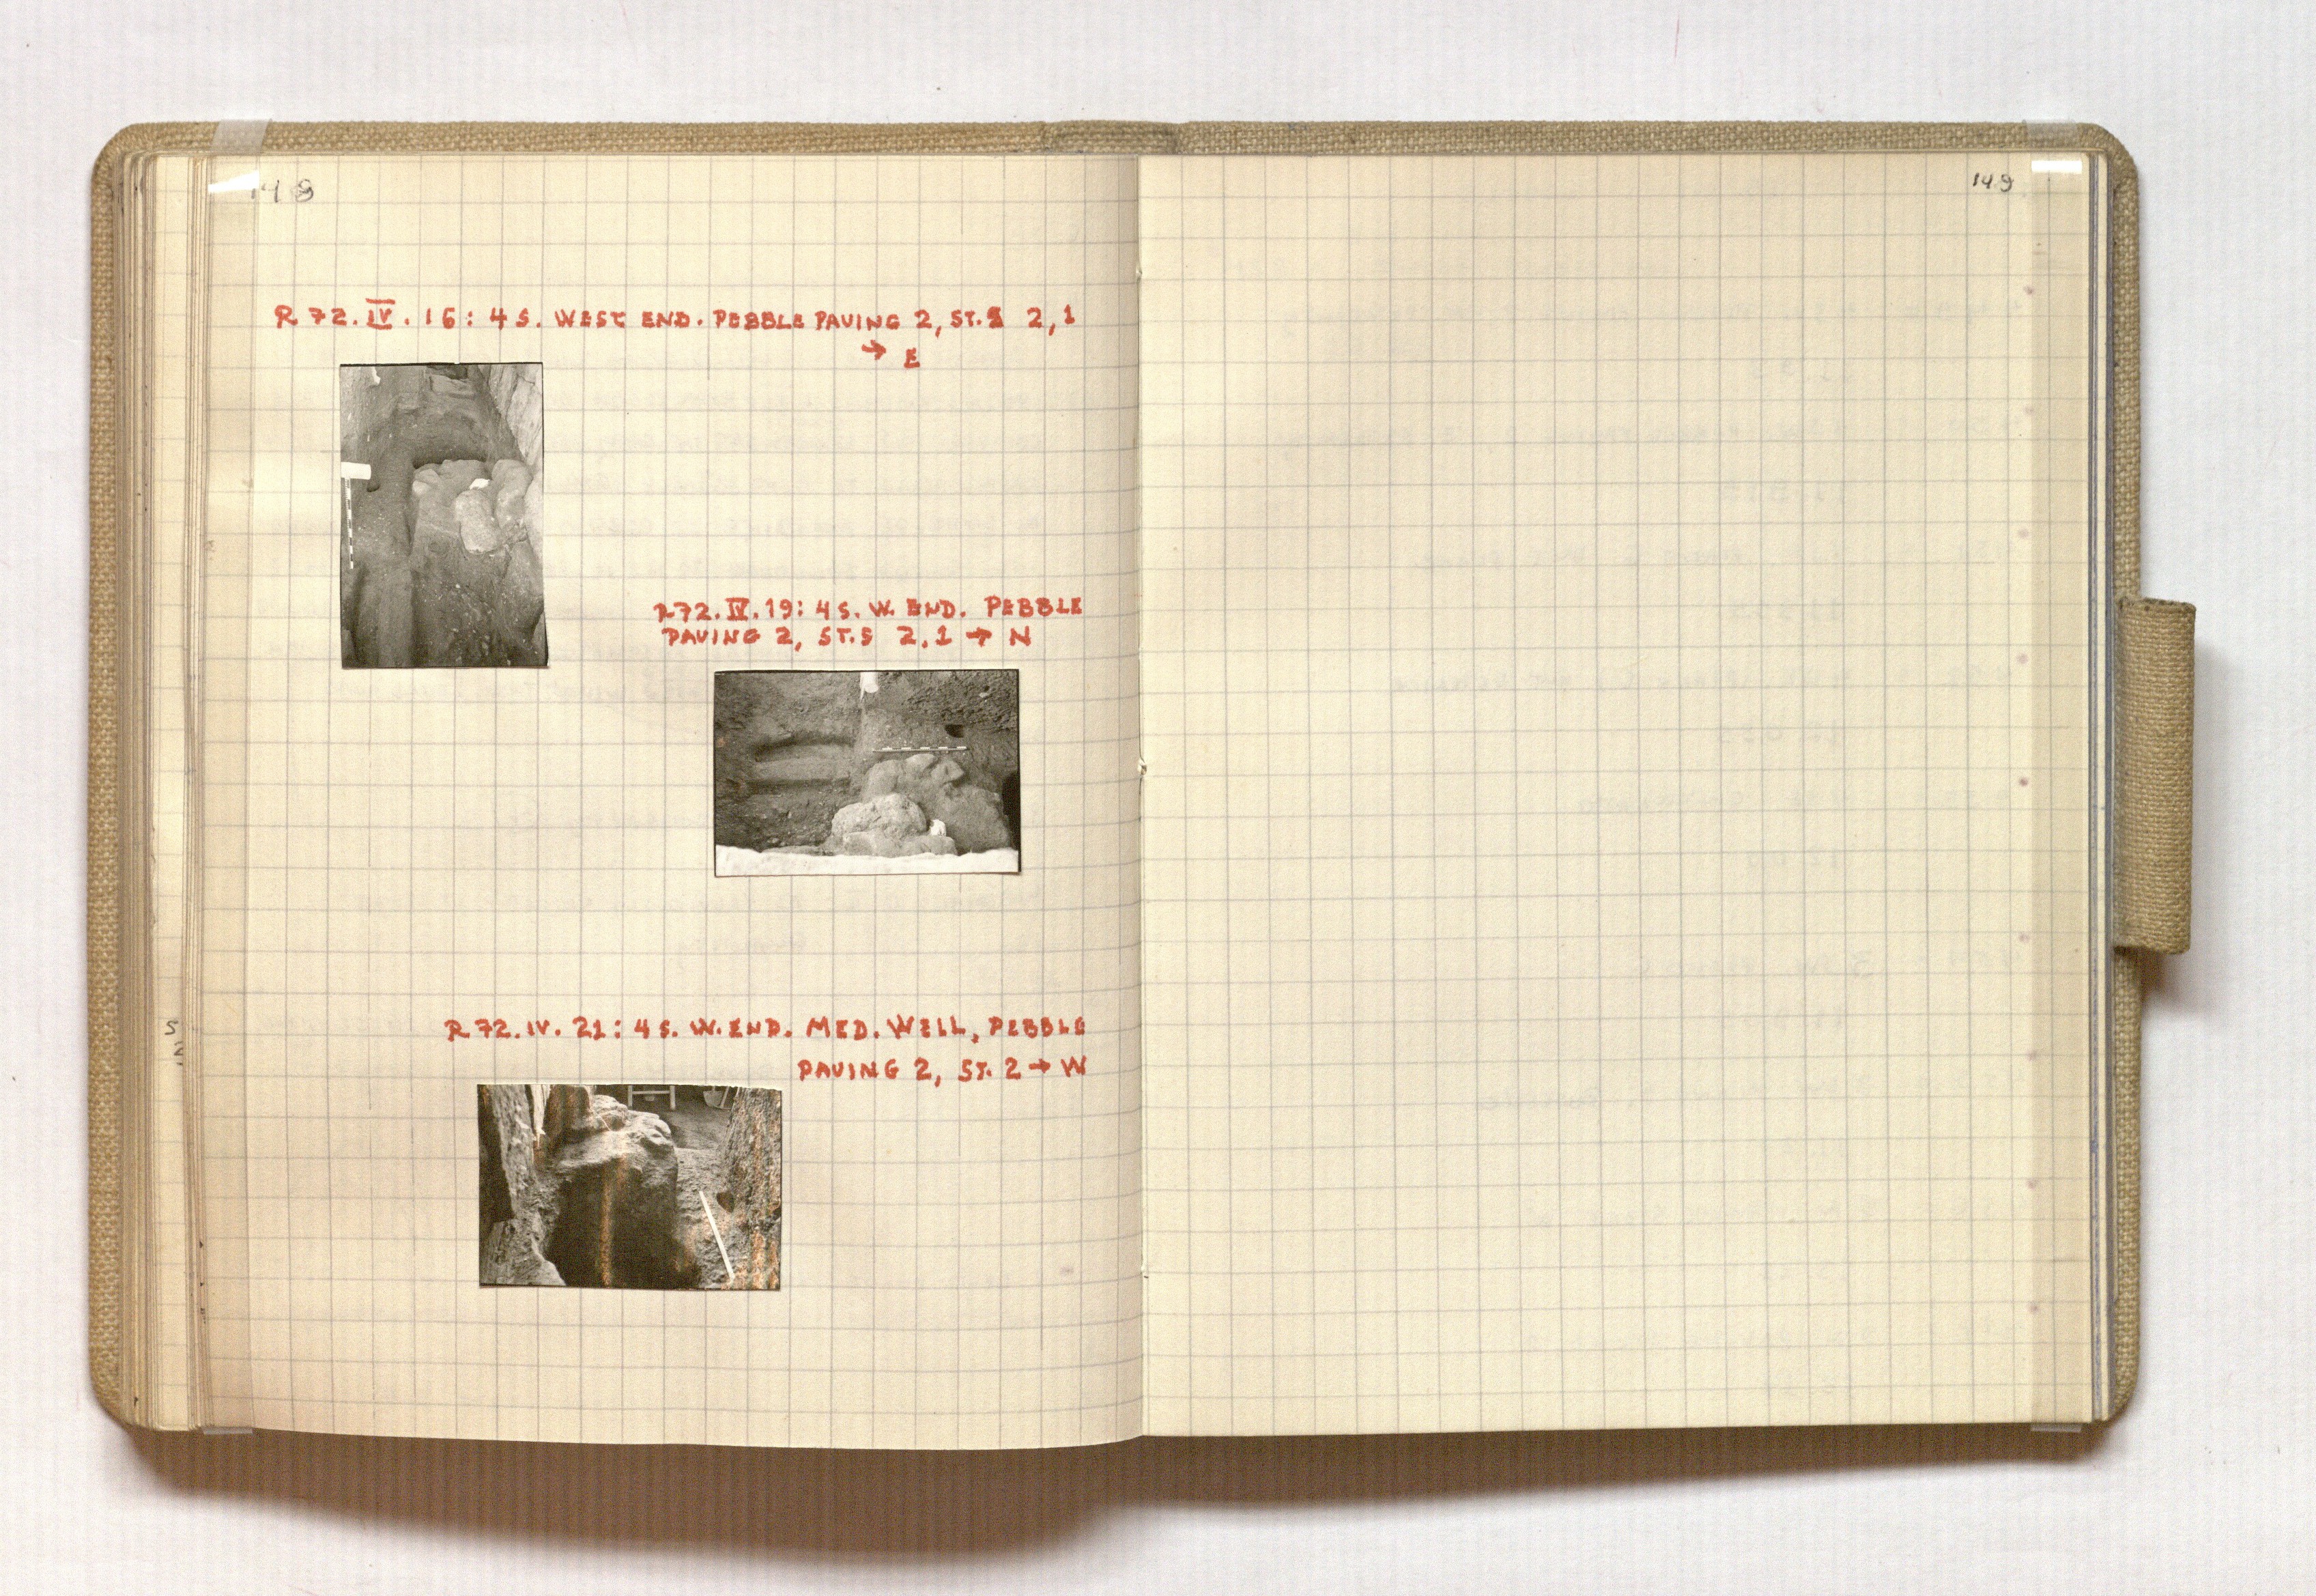 148
R 72. IV. 16: 4 S. WEST END. PEBBLE PAVING 2, ST.S 2, 1
→ E
R72. IV. 19: 4 S. W. END. PEBBLE
PAVING 2, ST.S 2, 1 → N
R 72. IV. 21: 4 S. W. END. MED. WELL, PEBBLE
PAVING 2, ST. 2 → W
149